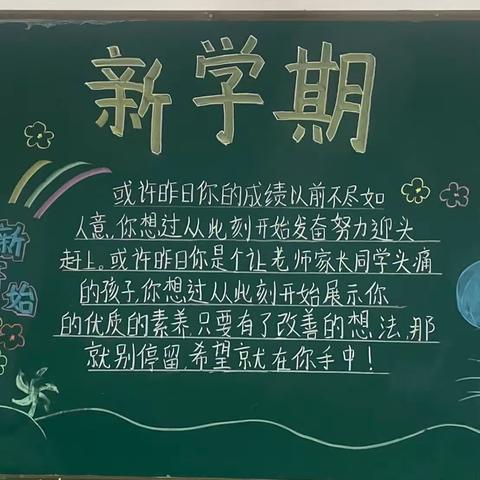 新学期
或许昨日你的成绩以前不尽如
人意,你想过从此刻开始发奋努力迎头
赶上。或许昨日你是个让老师家长同学头痛
的孩子,你想过从此刻开始展示你
的优质的素养,只要有了改善的想法,那
就别停留,希望就在你手中!
新
开始